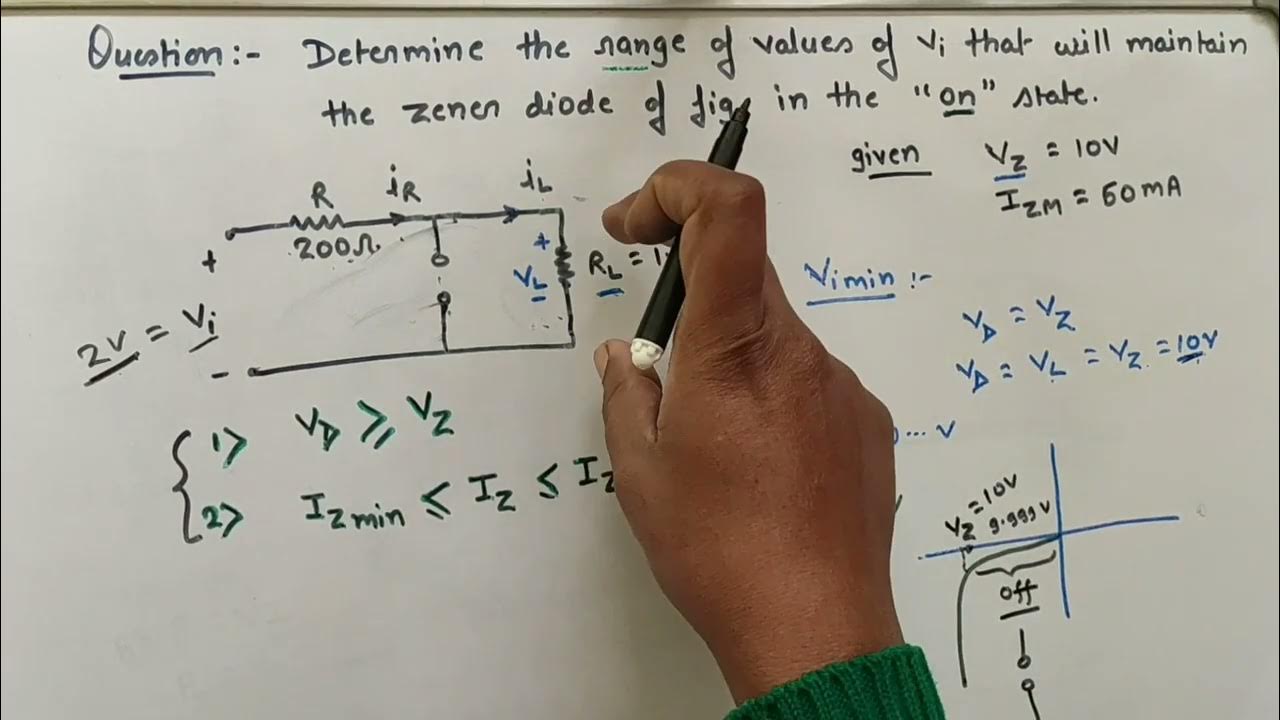 Question:- Determine the range of values of Vi that will maintain
the zener diode of fig. in the "on" state.
given VZ = 10V
IZM = 60mA
R
iR
iL
200Ω
+
+
VL
RL = 1
2V = Vi
-
Vimin :-
VD = VZ
VD = VL = VZ = 10V
{ 1> VD ≥ VZ
2> IZmin ≤ IZ ≤ IZ
... V
VZ = 10V
9.999V
off